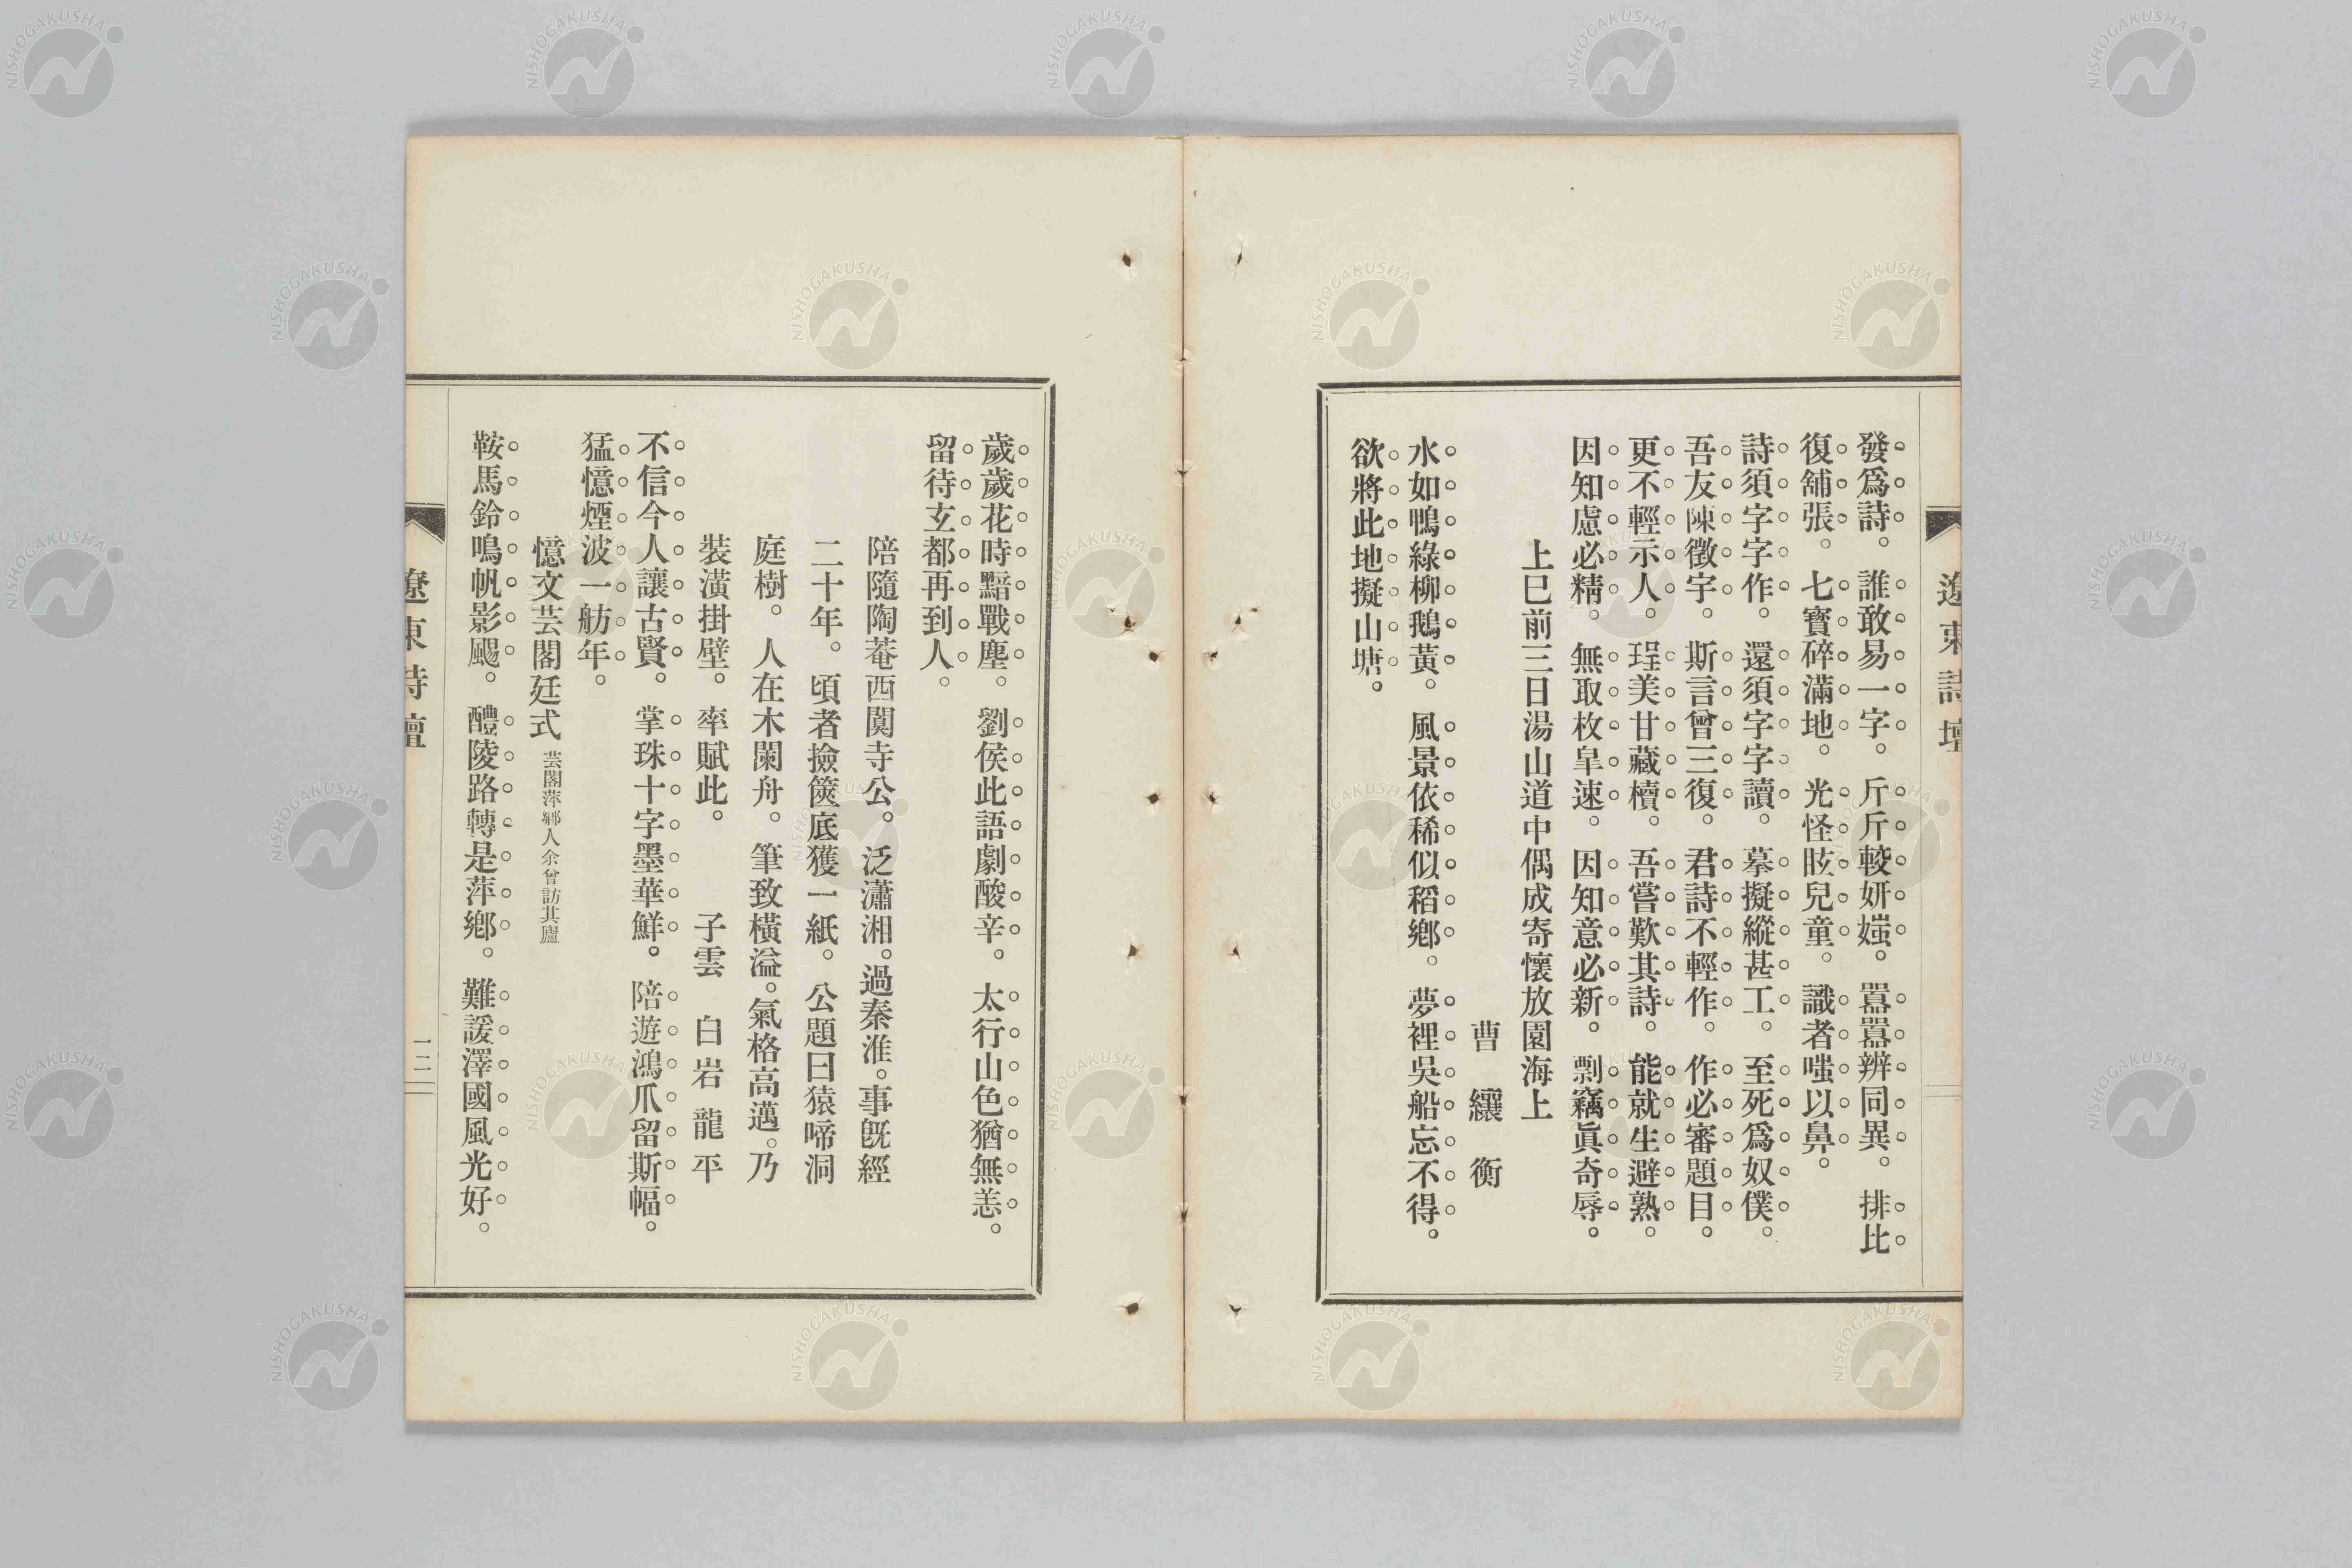 遼東詩壇
發爲詩。誰敢易一字。斤斤較妍媸。囂囂辨同異。排比
復舖張。七寶碎滿地。光怪眩兒童。識者嗤以鼻。
詩須字字作。還須字字讀。摹擬縱甚工。至死爲奴僕。
吾友陳徵宇。斯言曾三復。君詩不輕作。作必審題目。
更不輕示人。珵美甘藏櫝。吾嘗歎其詩。能就生避熟。
因知慮必精。無取枚臯速。因知意必新。剽竊眞奇辱。
上巳前三日湯山道中偶成寄懷放園海上
曹纕衡
水如鴨綠柳鵝黃。風景依稀似稻鄉。夢裡吳船忘不得。
欲將此地擬山塘。
歲歲花時黯戰塵。劉侯此語劇酸辛。太行山色猶無恙。
留待玄都再到人。
陪隨陶菴西園寺公。泛瀟湘。過秦淮。事既經
二十年。頃者撿篋底獲一紙。公題曰猿啼洞
庭樹。人在木蘭舟。筆致橫溢。氣格高邁。乃
裝潢掛壁。率賦此。 子雲 白岩龍平
不信今人讓古賢。掌珠十字墨華鮮。陪遊鴻爪留斯幅。
猛憶煙波一舫年。
憶文芸閣廷式 芸閣萍鄉人余曾訪其廬
鞍馬鈴鳴帆影颺。醴陵路轉是萍鄉。難諼澤國風光好。
遼東詩壇
一二
NISHOGAKUSHA